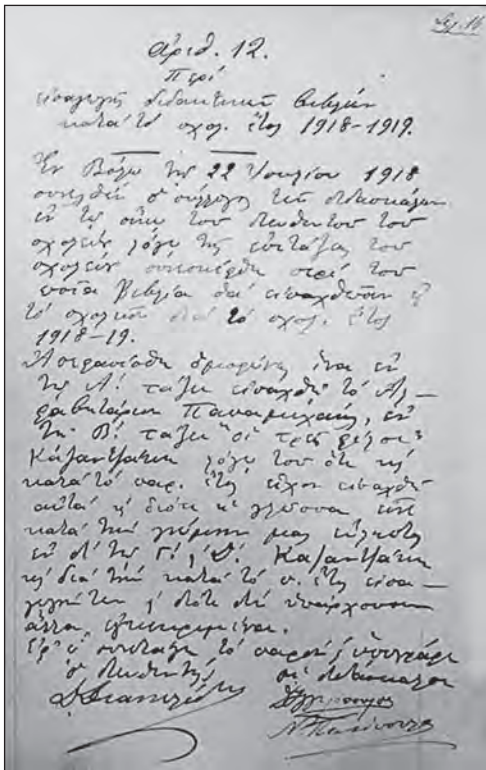 Σελ. 16
Αριθ. 12.
Περί
εισαγωγής διδακτικών βιβλίων
κατά το σχολ. έτος 1918-1919.
Εν Βόλω την 22 Ιουλίου 1918
συνελθών ο σύλλογος των διδασκάλων
εν τω οίκω του διευθυντού του
σχολείου λόγω της επιτάξεως του
σχολείου συνεσκέφθη περί του
ποία βιβλία θα εισαχθώσιν εις
το σχολείον διά το σχολ. έτος
1918-19.
Απεφασίσθη ομοφώνως ίνα εν
τη Α' τάξει εισαχθή το Αλ-
φαβητάριον, εν
τη Β' τάξει "οι τρεις φίλοι"
Καζαντζάκη λόγω του ότι και
κατά το παρ. έτος είχον εισαχθή
αυτά και διότι η γλώσσα είνε
κατά την γνώμην μας εύληπτος
εν δε τη Γ' και Δ' Καζαντζάκη
και διά την κατά το π. έτος εισα-
γωγήν των και διότι δεν υπάρχουσιν
άλλα εγκεκριμένα.
Εφ' ω συνετάγη το παρόν και υπεγράφη
ο διευθυντής οι διδάσκαλοι